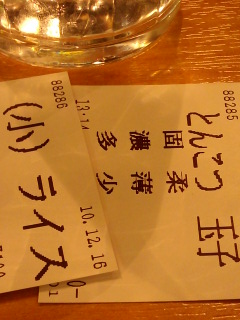 88286
(小)ライス
10.12.16
13:14
88285
とんこつ
玉子
固 柔
濃 薄
多 少